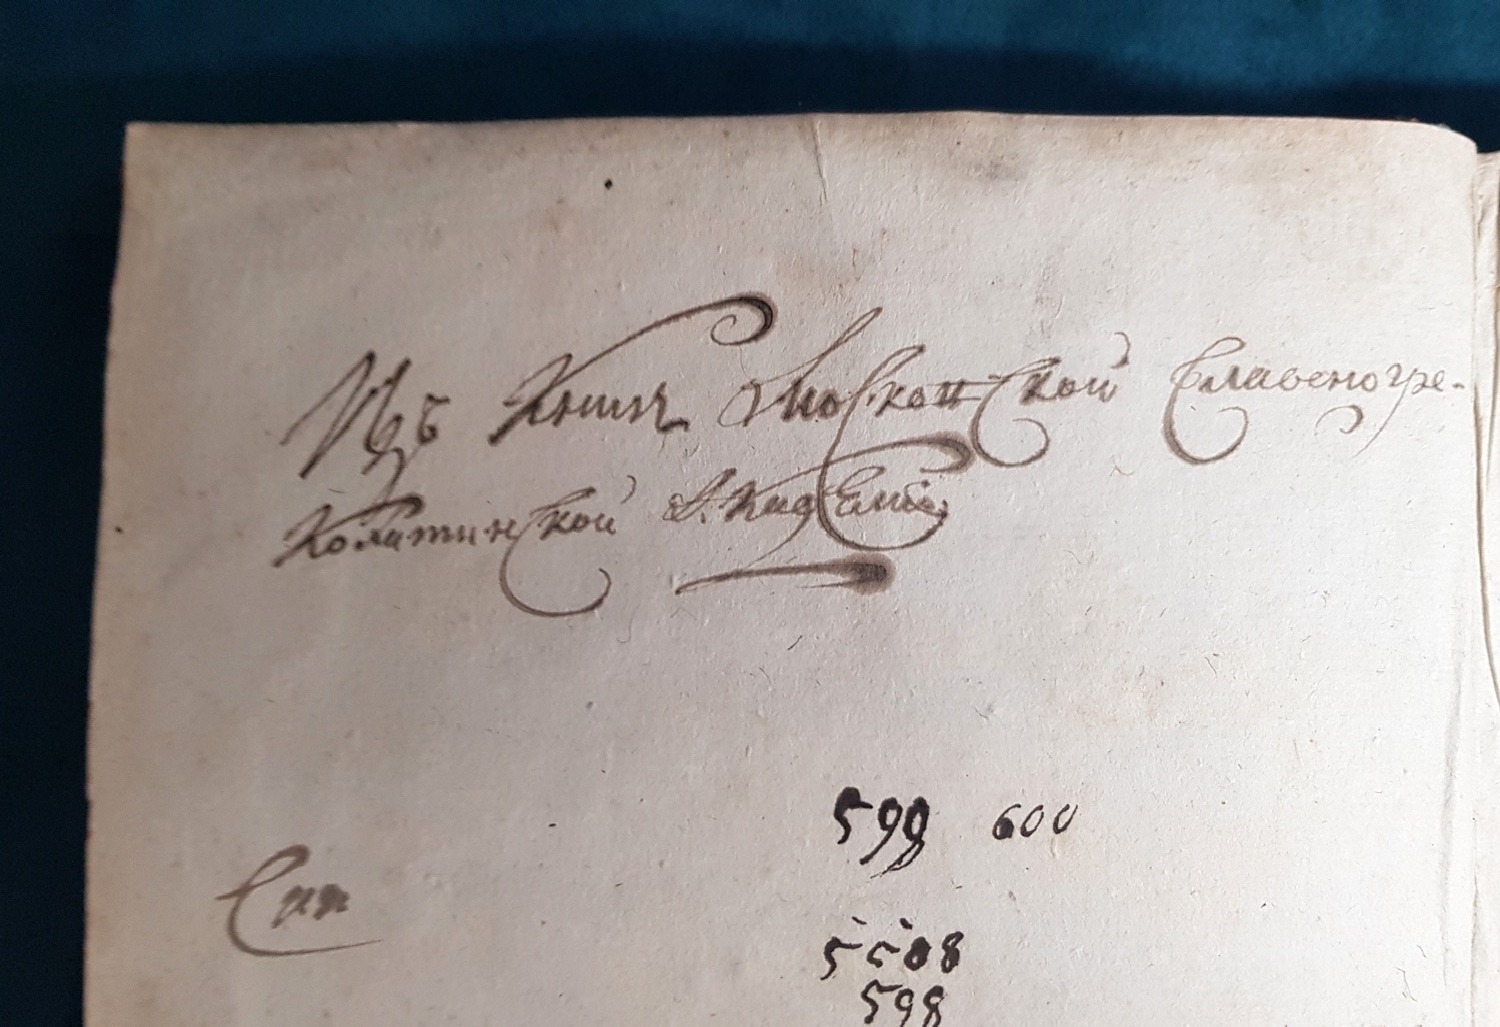 Изъ Книгъ Московской Славеногре-
Колатинской Академіи
599 600
5508
598